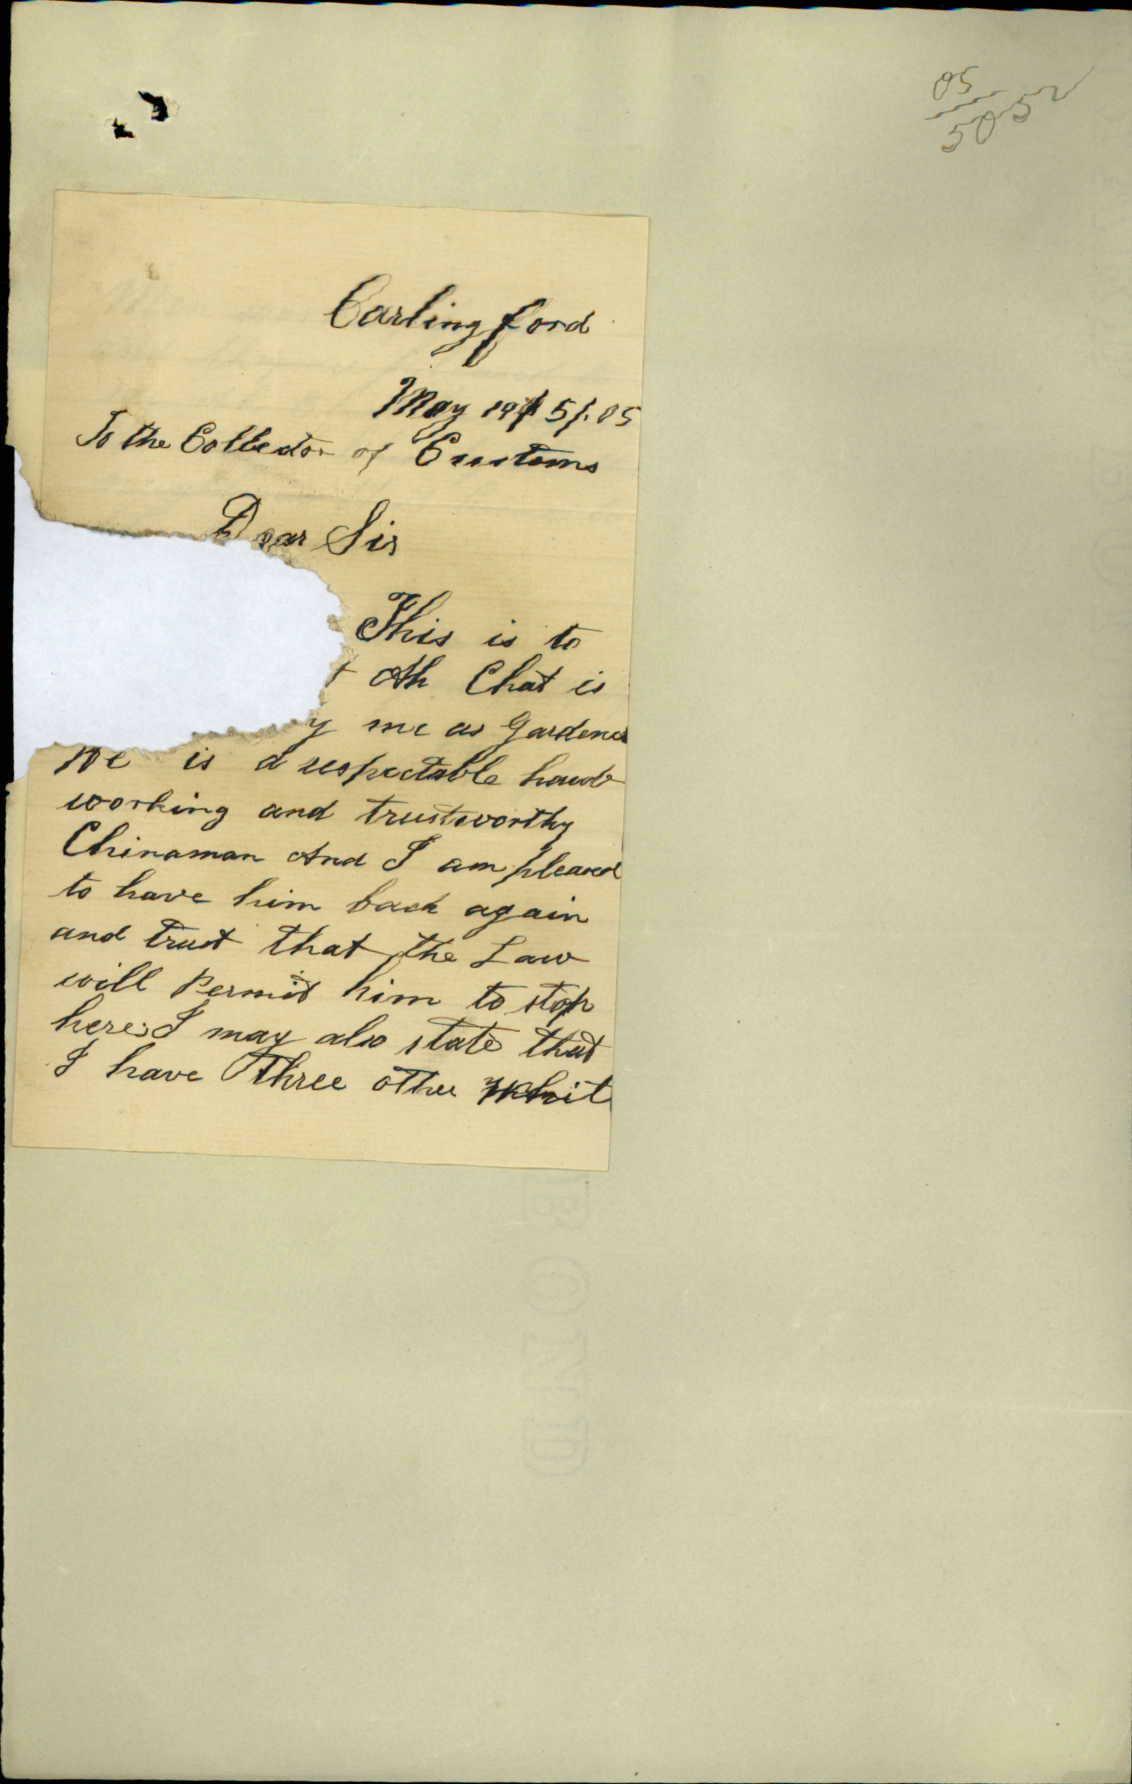 05
5052
Carlingford
May 19/5/.05
To the Collector of Customs
Dear Sir
This is to
t Ah Chat is
y me as Gardener
He is a respectable hard
working and trustworthy
Chinaman And I am pleased
to have him back again
and trust that the Law
will Permit him to stop
here. I may also state that
I have Three other Whit
BOND